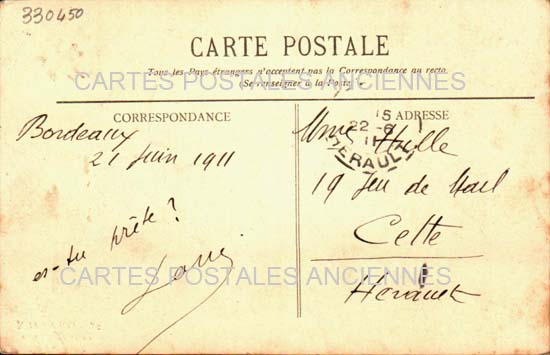 330450
CARTE POSTALE
Tous les Pays étrangers n'acceptent pas la Correspondance au recto
(Se renseigner à la Poste)
CARTES POSTALES ANCIENNES
CORRESPONDANCE
ADRESSE
Bordeaux
21 Juin 1911
es-tu prête?
Mme
19 Jeu de Mail
Cette
Hérault
15
22-6
11
HERAULT
CARTES POSTALES ANCIENNES